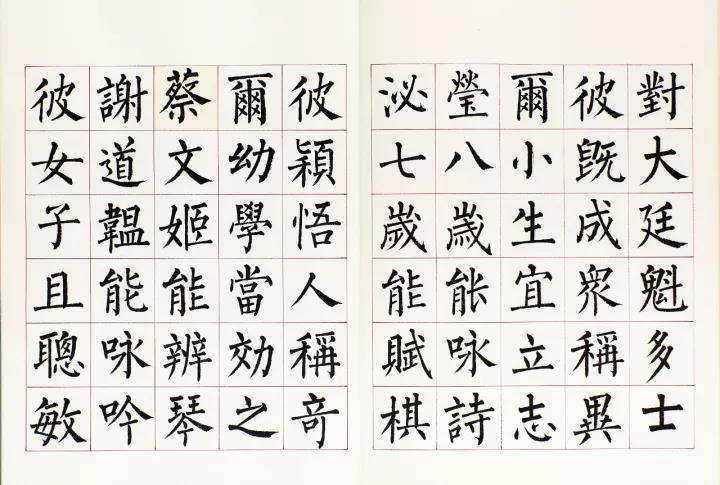 對大廷魁多士
彼既成衆稱異
爾小生宜立志
瑩八歲能咏詩
泌七歲能賦棋
彼穎悟人稱竒
爾幼學當効之
蔡文姬能辨琴
謝道韞能咏吟
彼女子且聰敏